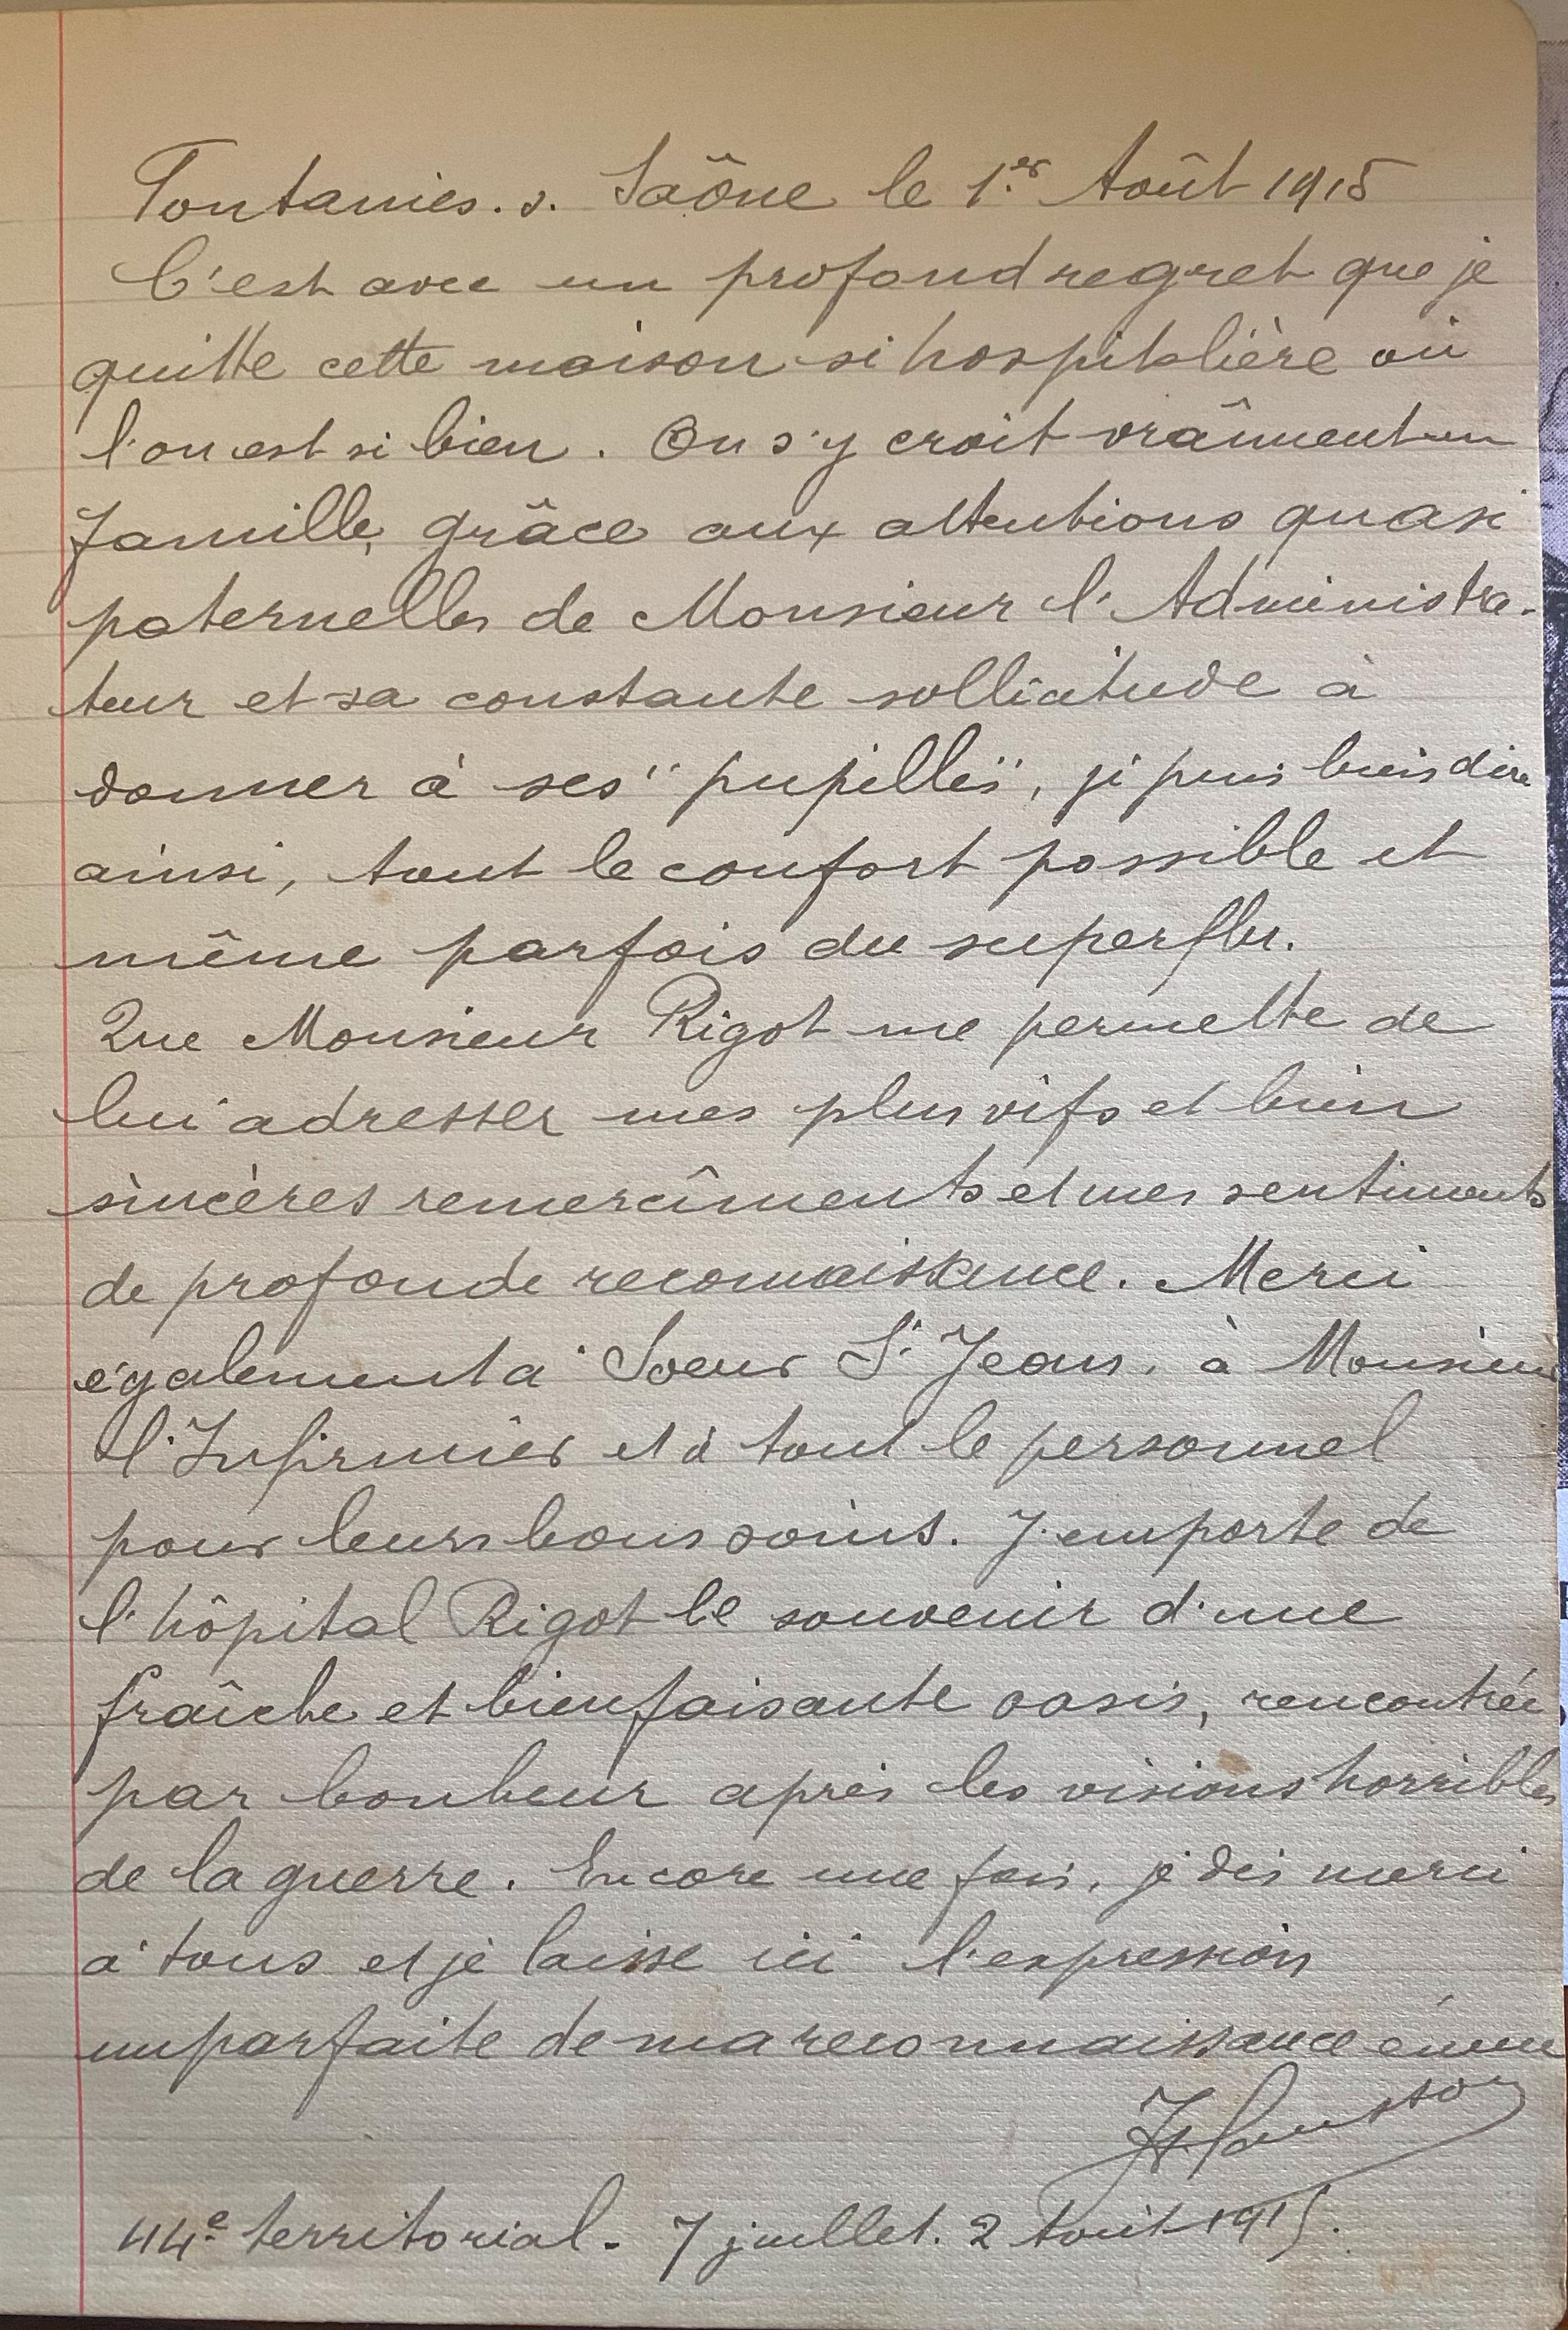 Fontaines. s. Saône le 1er Août 1915
C'est avec un profond regret que je
quitte cette maison si hospitalière où
l'on est si bien. On s'y croit vraîment en
famille, grâce aux attentions quasi
paternelles de Monsieur l'Administra-
teur et sa constante sollicitude à
donner à ses "pupilles", je puis bien dire
ainsi, tout le confort possible et
même parfois du superflu.
Que Monsieur Rigot me permette de
lui adresser mes plus vifs et bien
sincères remercîments et mes sentiments
de profonde reconnaissance. Merci
également à Soeur St Jean, à Monsieur
l'Infirmier et à tout le personnel
pour leurs bons soins. J'emporte de
l'hôpital Rigot le souvenir d'une
fraîche et bienfaisante oasis, rencontrée
par bonheur après les visions horribles
de la guerre. Encore une fois, je dis merci
à tous et je laisse ici l'expression
imparfaite de ma reconnaissance émue
44e territorial. 7 juillet. 2 Août 1915.